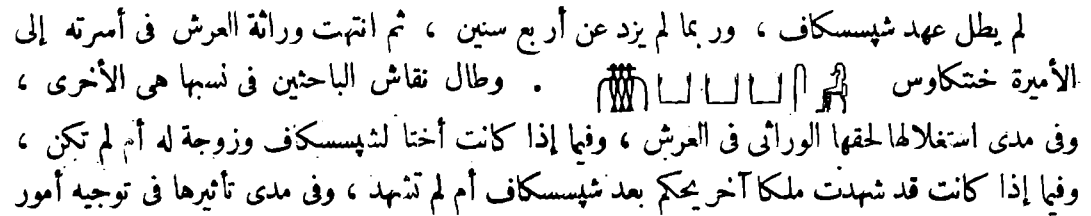 لم يطل عهد شپسسكاف ، وربما لم يزد عن أربع سنين ، ثم انتهت وراثة العرش فى أسرته إلى
الأميرة خنتكاوس . وطال نقاش الباحثين فى نسبها هى الأخرى ،
وفى مدى استغلالها لحقها الوراثى فى العرش ، وفيما إذا كانت أختا لشپسسكاف وزوجة له أم لم تكن ،
وفيما إذا كانت قد شهدت ملكا آخر يحكم بعد شپسسكاف أم لم تشهد ، وفى مدى تأثيرها فى توجيه أمور